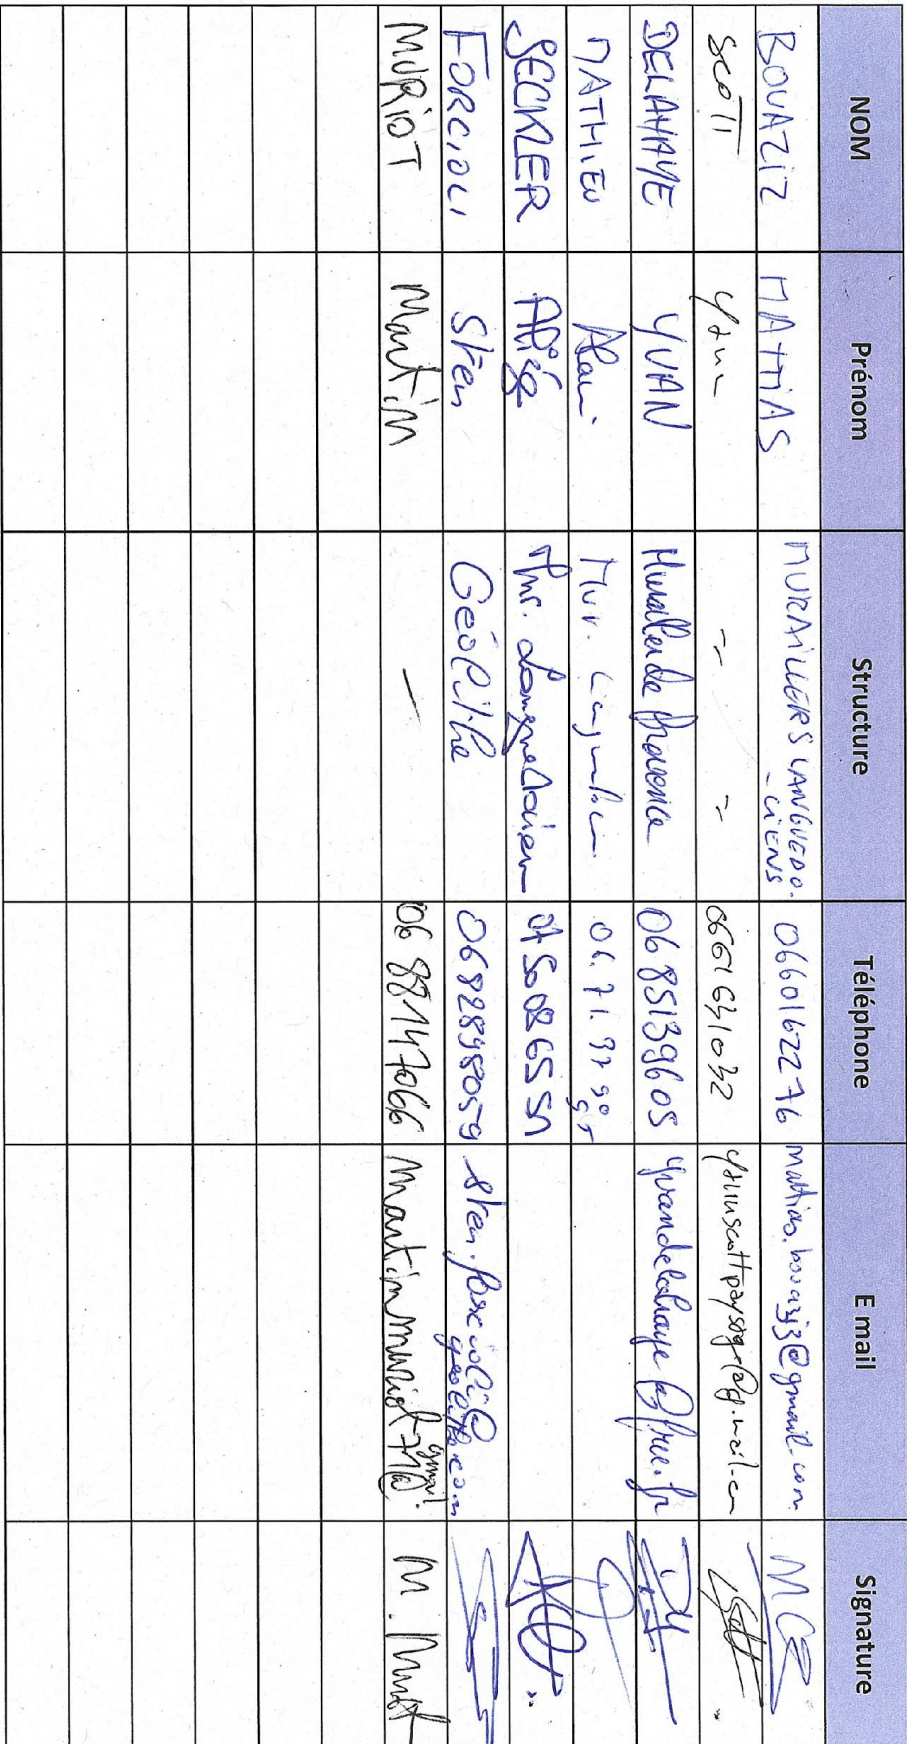 NOM Prénom Structure Téléphone E mail Signature
BOUAZIZ MATTIAS MURAILLERS LANGUEDO- 0660162276 mattias.bouaziz@gmail.com
-CIENS
SCOTTI Yann -"- -"- 0661641032 yannscottipaysage@gmail.com
DELAHAYE YVAN Muraillers de Provence 0685139605 yvandelahaye@free.fr
MATHIEU Alain Mur. 06.71.92
SECKLER Mur. Languedocien 0750286551
FORCIOLI Sten Géolithe 0682898059 sten.forcioli@
geolithe.com
MURIOT Martin — 0688147066 martinmuriot71@ M. Muriot
gmail